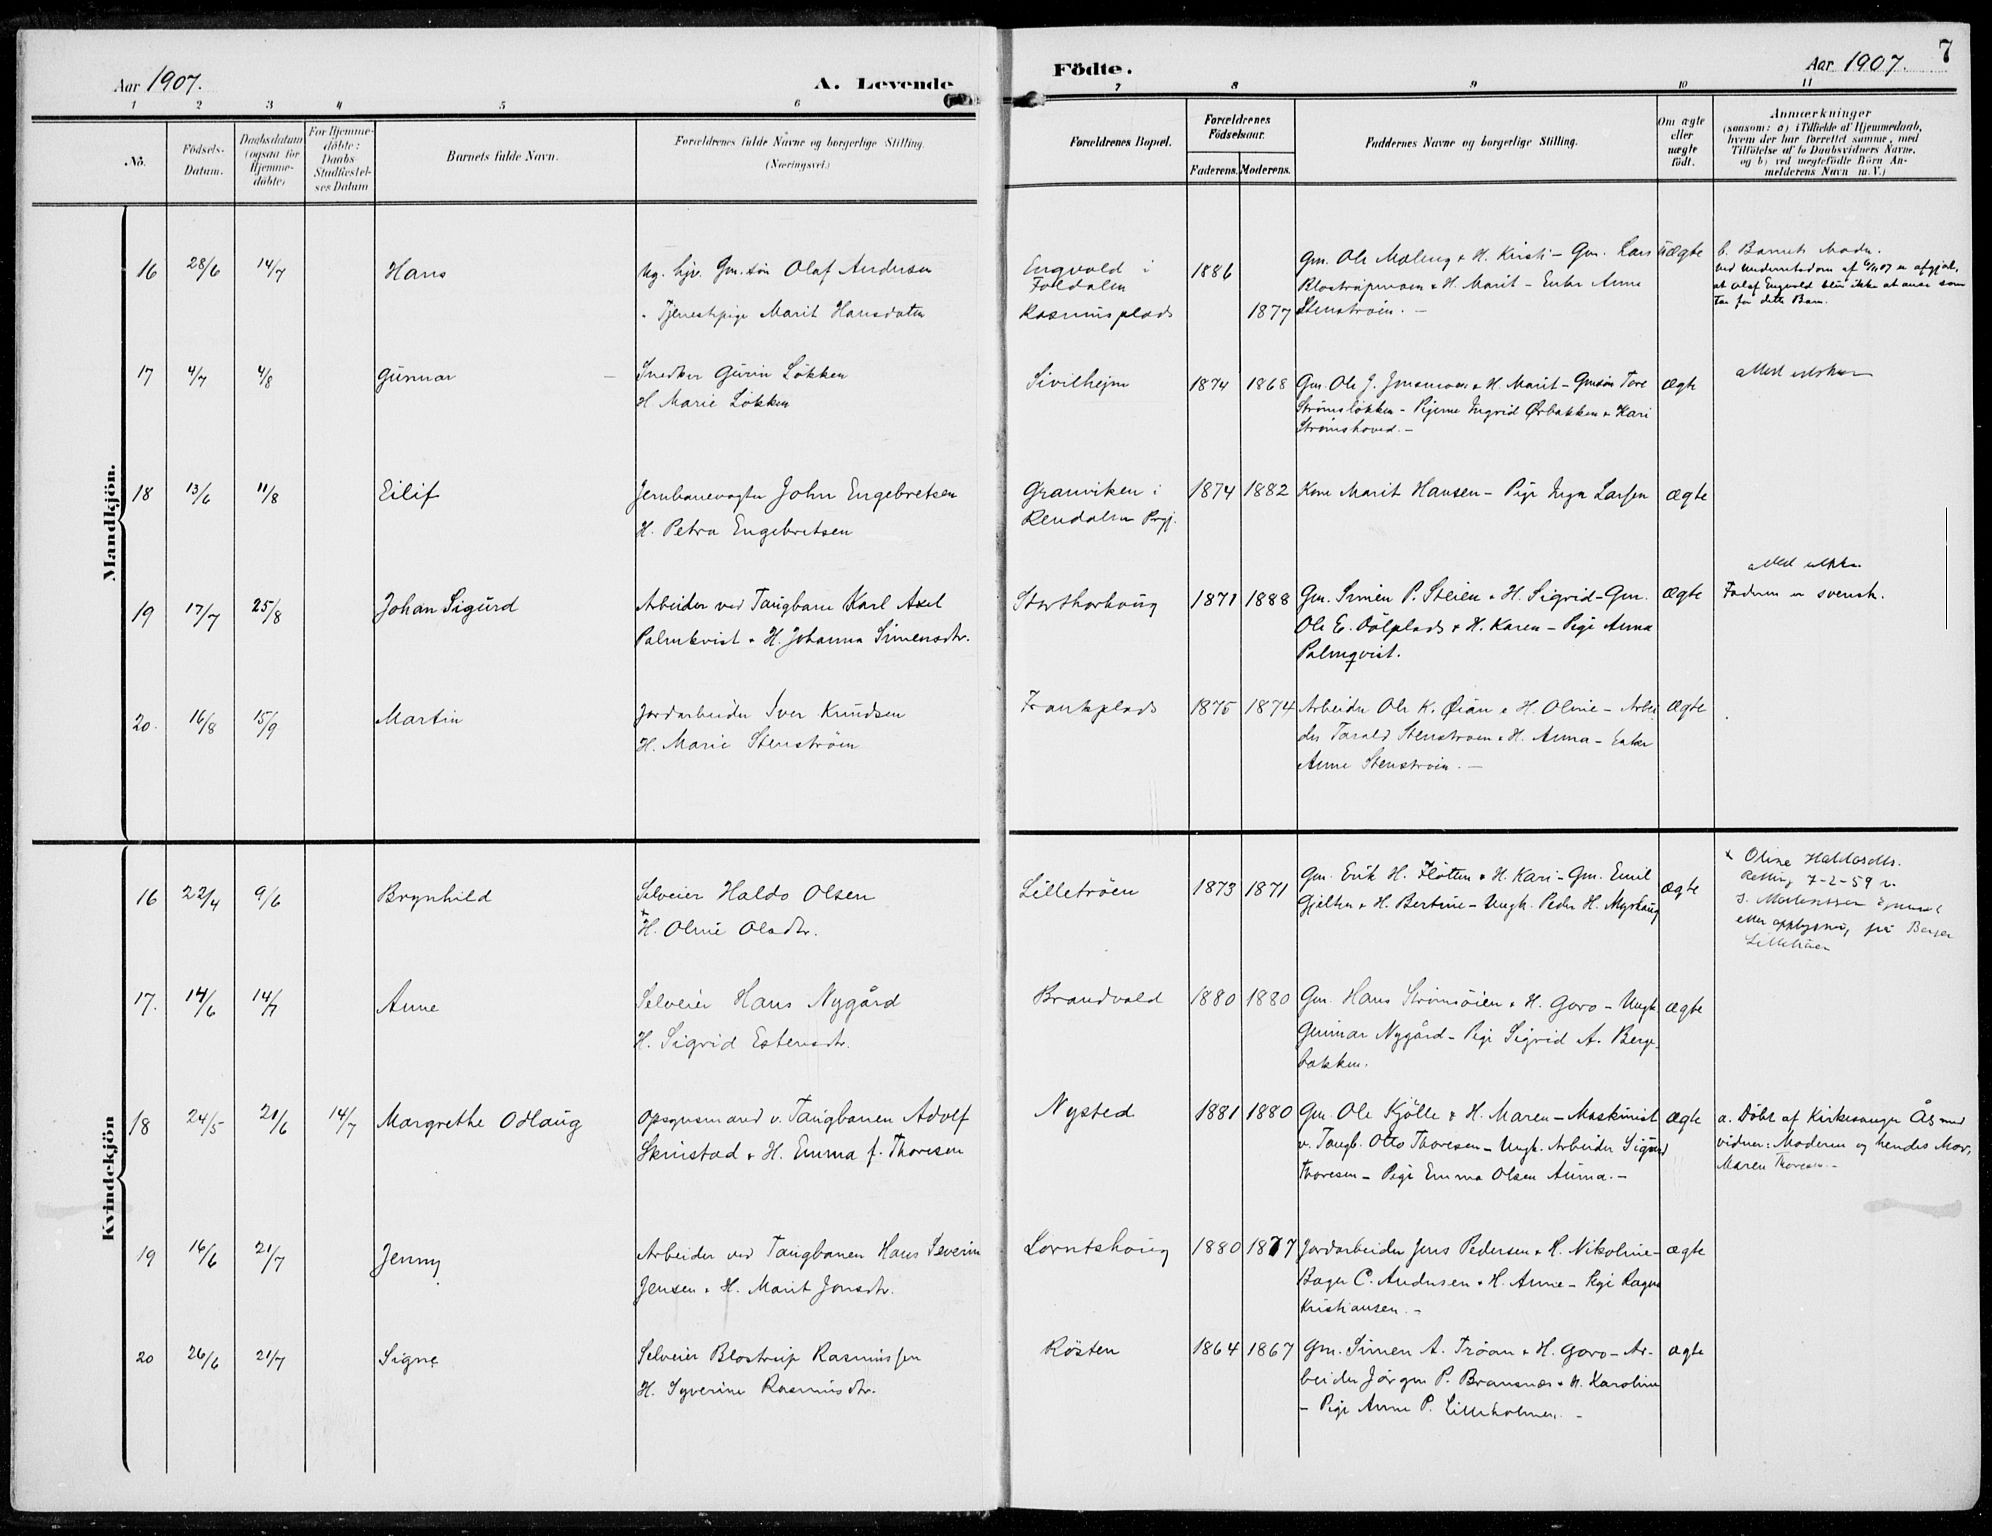 Aar 1907.
A. Levende
Födte.
Aar 1907.
7
1 2 3 4 5 6 7 8 9 10 11
No.
Födsels-
Datum.
Daabsdatum
(ogsaa for
Hjemme-
döbte)
For Hjemme-
döbte:
Daabs
Stadfæstel-
ses Datum
Barnets fulde Navn.
Forældrenes fulde Navne og borgerlige Stilling.
(Næringsvei.)
Forældrenes Bopæl.
Forældrenes
Födselsaar.
Faderens. Moderens.
Faddernes Navne og borgerlige Stilling.
Om ægte
eller
uægte
født.
Anmærkninger
(saasom: a) i Tilfælde af Hjemmedaab,
hvem der har forrettet samme, med
Tilföielse af to Daabsvidners Navne,
og b) ved uegtefödte Börn An-
melderens Navn m. V.)
Mandkjön.
16 28/6 14/7 Hans
Ug. Gm. sön Olaf Andersen
- Tjenestepige Marit Hansdatter
Engvold i
Foldalen
Rasmusplads
1886
1877
Gm. Ole Moleng & H. Kirsti - Gm. Lars
& H. Marit - Enke Anne
Stenströen. -
Uægte
b. Barnets Moder.
ved Underretsdom af er afgjort,
at Olaf Engvold blir ikke at anse som
Far for dette Barn.
17 4/7 4/8 Gunnar
Snedker Løkken
H Marie Løkken
Sivilhejm
1874 1868
Gm. Ole J. & H. Marit - Gmsön Tore
Strömsløkken - Pigerne Ingrid Ørbakken & Kari
Strömshoved. -
ægte
18 13/6 11/8 Eilif
Jernbanevogter John Engebretsen
H. Petra Engebretsen
Granviken i
Rendalen Prgj.
1874 1882
Kone Marit Hansen - Pige Inga Larsen
ægte
19 17/7 25/8 Johan Sigurd
Arbeider ved Taugbane Karl Axel
Palmkvist & H. Johanna Simensdtr.
1871 1888
Gm. Simen P. Steien & H. Sigrid - Gm.
Ole E. Dölplads & H. Karen - Pige Anna
Palmqvist.
ægte
Faderen er svensk.
20. 16/8 15/9 Martin
Jordarbeider Iver Knudsen
H. Marie Stenströen
Frankplads
1875 1874
Arbeider Ole K. Øian & H. Oline - Arbei
der Tarald Stenstroen & H. Anna - Enke
Anne Stenstroen. -
ægte
Kvindekjön
16 22/4 9/6 Brynhild
Selveier Haldo Olsen
x
H. Oline Olsdtr.
Lilletröen
1873 1871
Gm. Erik H. Fløtten & H. Kari - Gm. Emil
Gjelten & H. Bertine - Ungk. Peder H. Myrhaug
ægte
x Oline Haldosdtr.
Retting 7-2-59 v.
etter opplysning frå
Lilletröen
17. 14/6 14/7 Anne
Selveier Hans Nygård
H. Sigrid Estensdtr.
Brandvold
1880 1880
Gm. Hans Strömsöien & H. Goro - Ungk
Gunnar Nygård - Pige Sigrid A. Berge-
bakken.
ægte
18 24/5 21/6 14/7 Margrethe Odlaug
Opsynsmand v. Taugbanen Adolf
Skinstad & H. Emma f. Thoresen
Nysted
1881 1880
Gm. Ole Kjölle & H. Maren - Maskinist
v. Taugb. Otto Thoresen - Ungk. Arbeider Sigurd
Thoresen - Pige Emma Olsen Auma. -
ægte
a. Döbt af Kirkesanger Ås med
vidner: Moderen og hendes Mor,
Maren Thoresen. -
19 16/6 21/7 Jenny
Arbeider ved Taugbanen Hans Severin
Jensen & H. Marit Jonsdtr.
Lorntshaug
1880 1877
Jordarbeider Jens Pedersen & H. Nikoline -
Bager C. Andersen & H. Anne - Pige Ragna
Kristiansen. -
ægte
20 26/6 21/7 Signe
Selveier Blostrup Rasmussen
H. Syverine Rasmusdtr.
Rösten
1864 1867
Gm. Simen A. Tröan & H. Goro - Ar-
beider Jörgen P. Bransnes & H. Karoline
- Pige Anne P. Lilleholmen. -
ægte